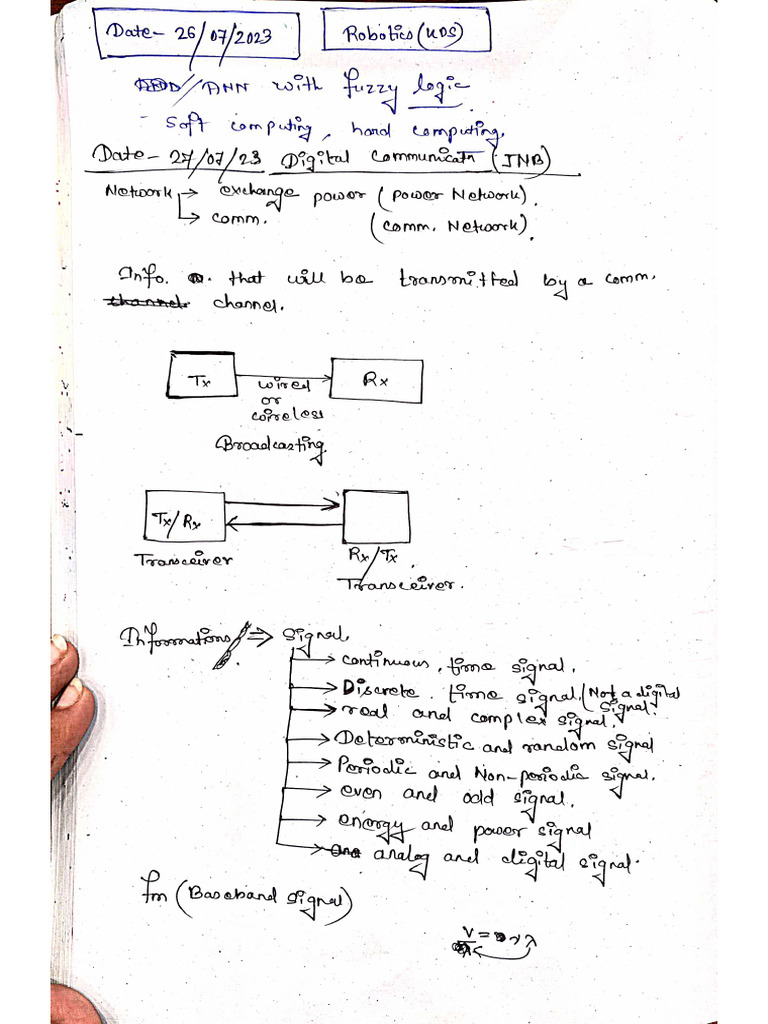 Date- 26/07/2023 Robotics (KDS)
/ANN with fuzzy logic
- Soft computing, hard computing.
Date- 27/07/23 Digital Communicatn (JNB)
Network → exchange power (Power Network).
↳ comm. (Comm. Network).
Info. that will be transmitted by a comm.
channel. channel.
Tx Rx
wired
or
wireless
Broadcasting
Tx/Rx
Transceiver
Rx/Tx.
Transceiver.
Informations ⇒ Signal.
→ continuous, time signal.
→ Discrete. time signal. (Not a digital
signal.
→ real and complex signal.
→ Deterministic and random signal
→ Periodic and Non-periodic signal.
→ even and odd signal.
→ energy and power signal
→ analog and digital signal.
fm (Baseband signal)
V = λ